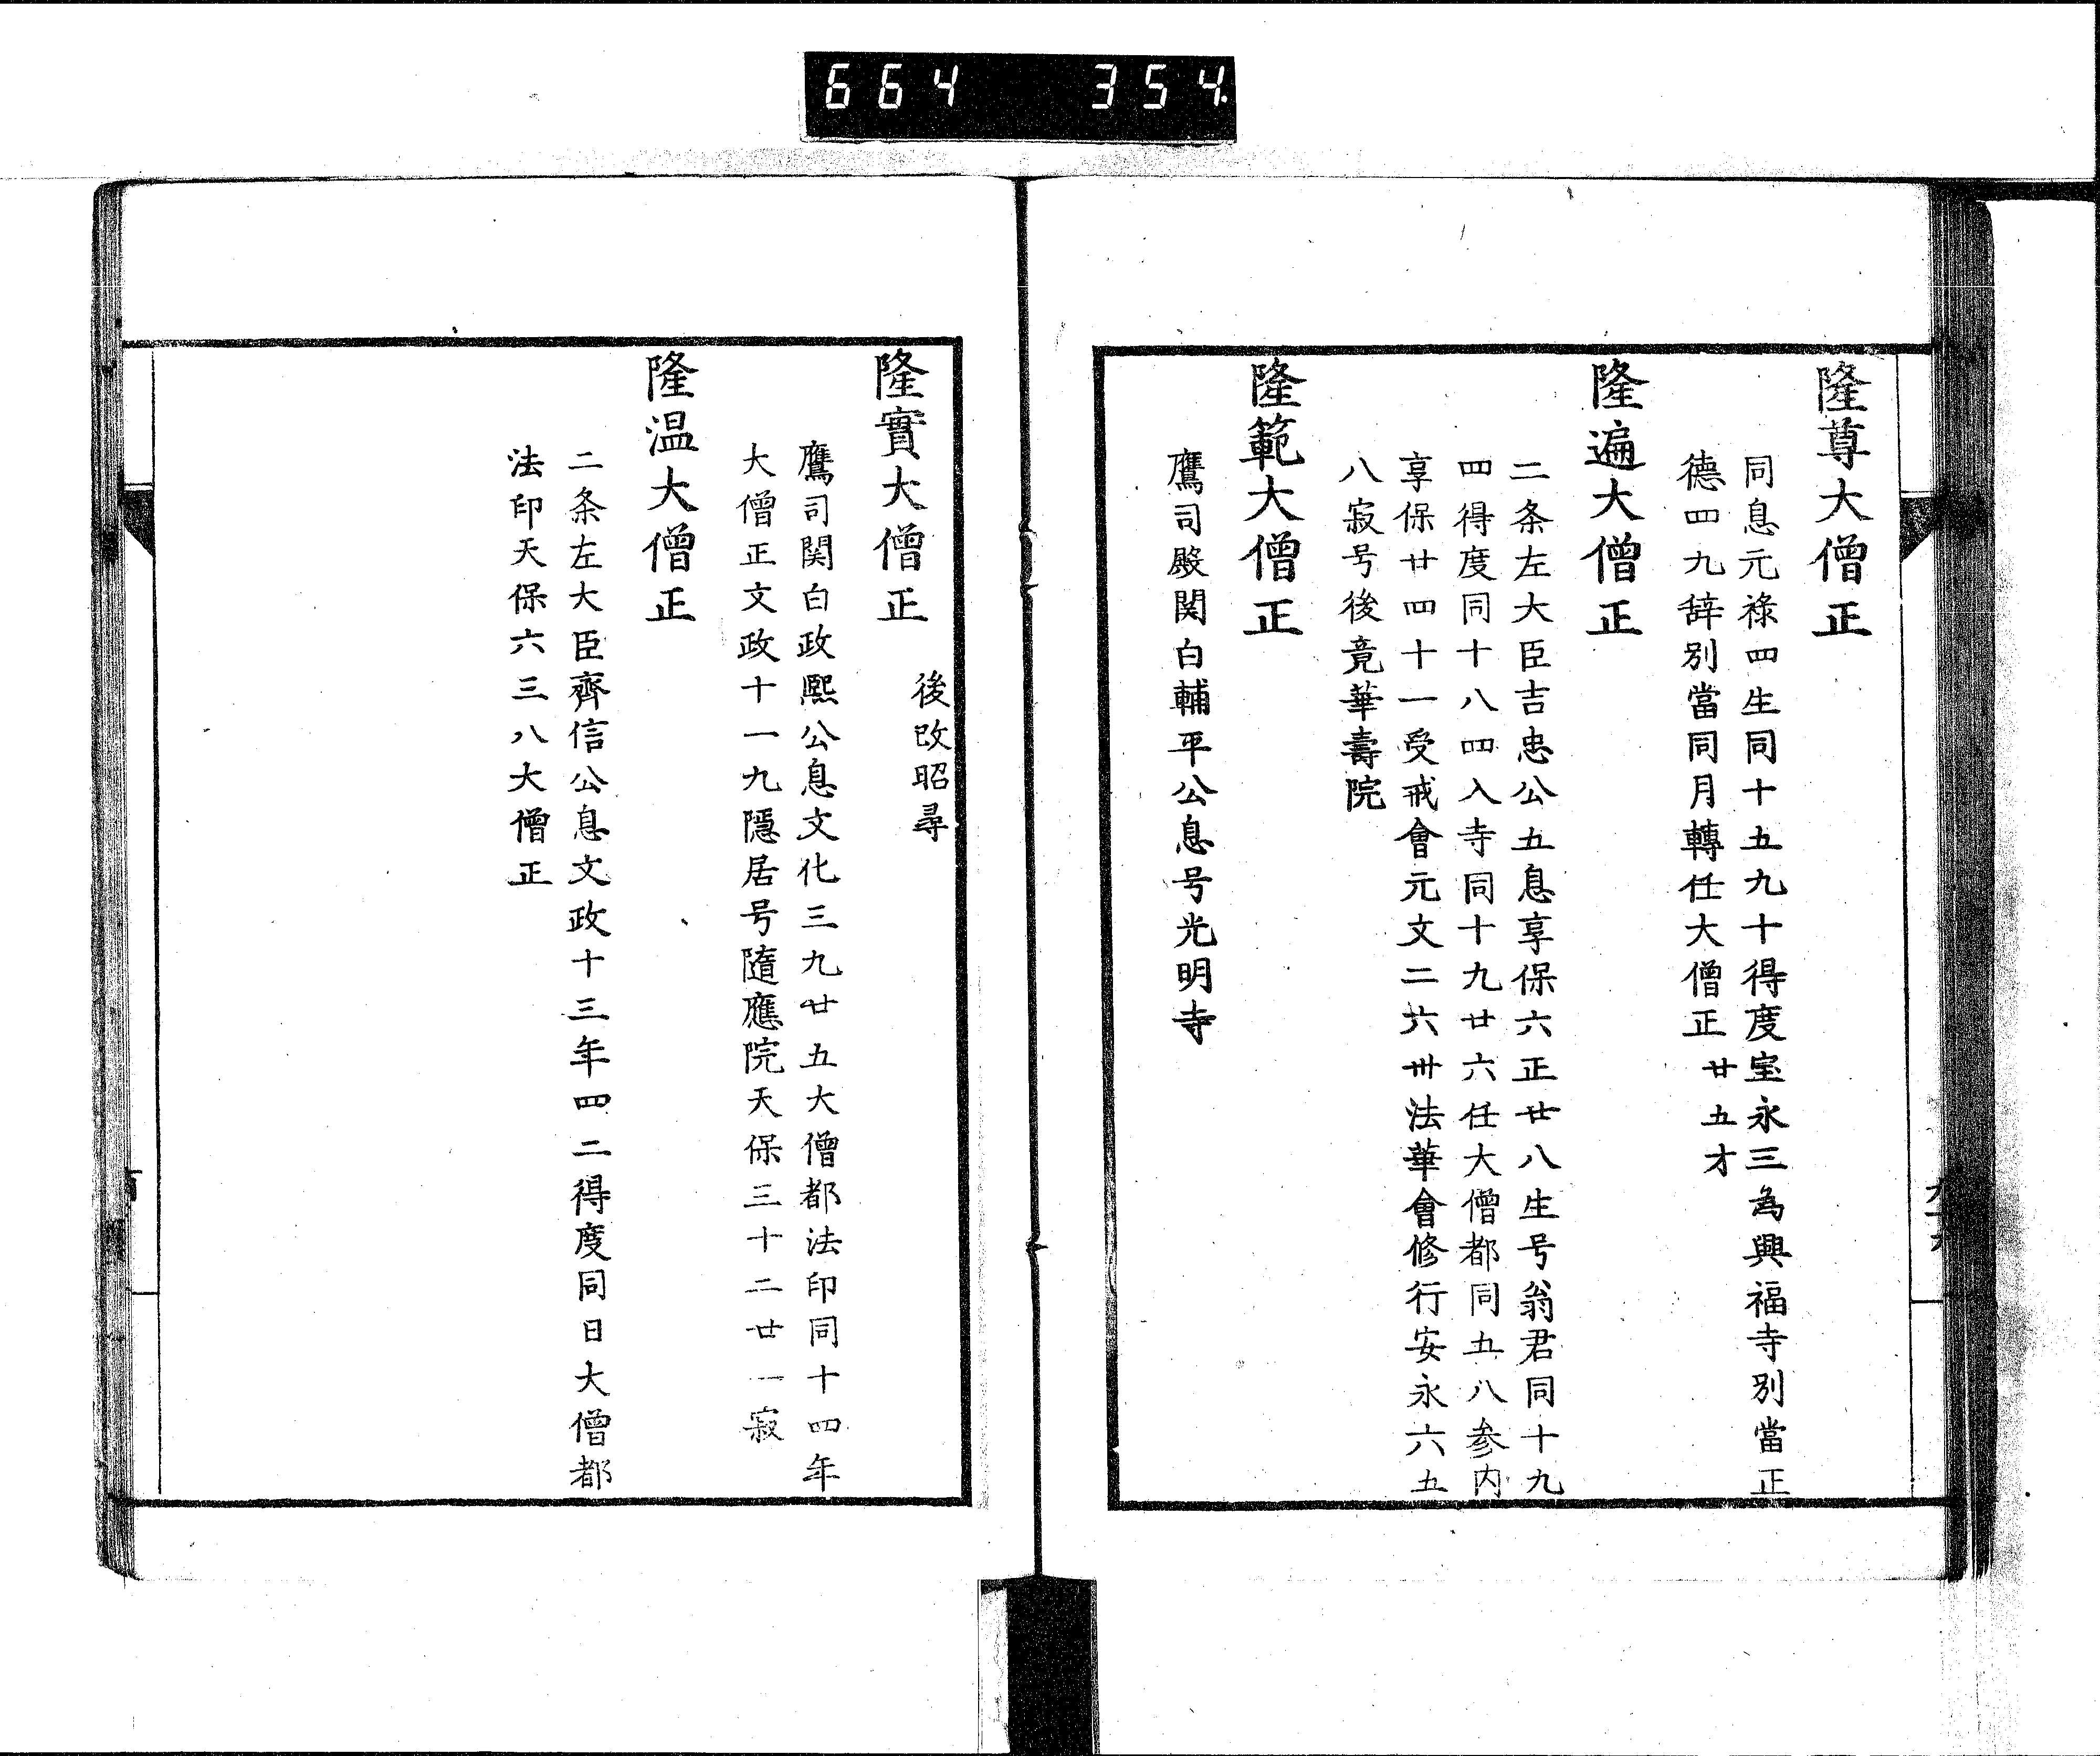 664 354
隆尊大僧正
同息元祿四生同十五九十得度宝永三為興福寺別當正
德四九辞別當同月轉任大僧正廿五才
隆遍大僧正
二条左大臣吉忠公五息享保六正廿八生号翁君同十九
四得度同十八四入寺同十九廿六任大僧都同五八参内
享保廿四十一受戒會元文二六卅法華會修行安永六五
八寂号後竟華壽院
隆範大僧正
鷹司殿関白輔平公息号光明寺
隆實大僧正
後改昭尋
鷹司関白政熙公息文化三九廿五大僧都法印同十四年
大僧正文政十一九隱居号隨應院天保三十二廿一寂
隆温大僧正
二条左大臣齊信公息文政十三年四二得度同日大僧都
法印天保六三八大僧正